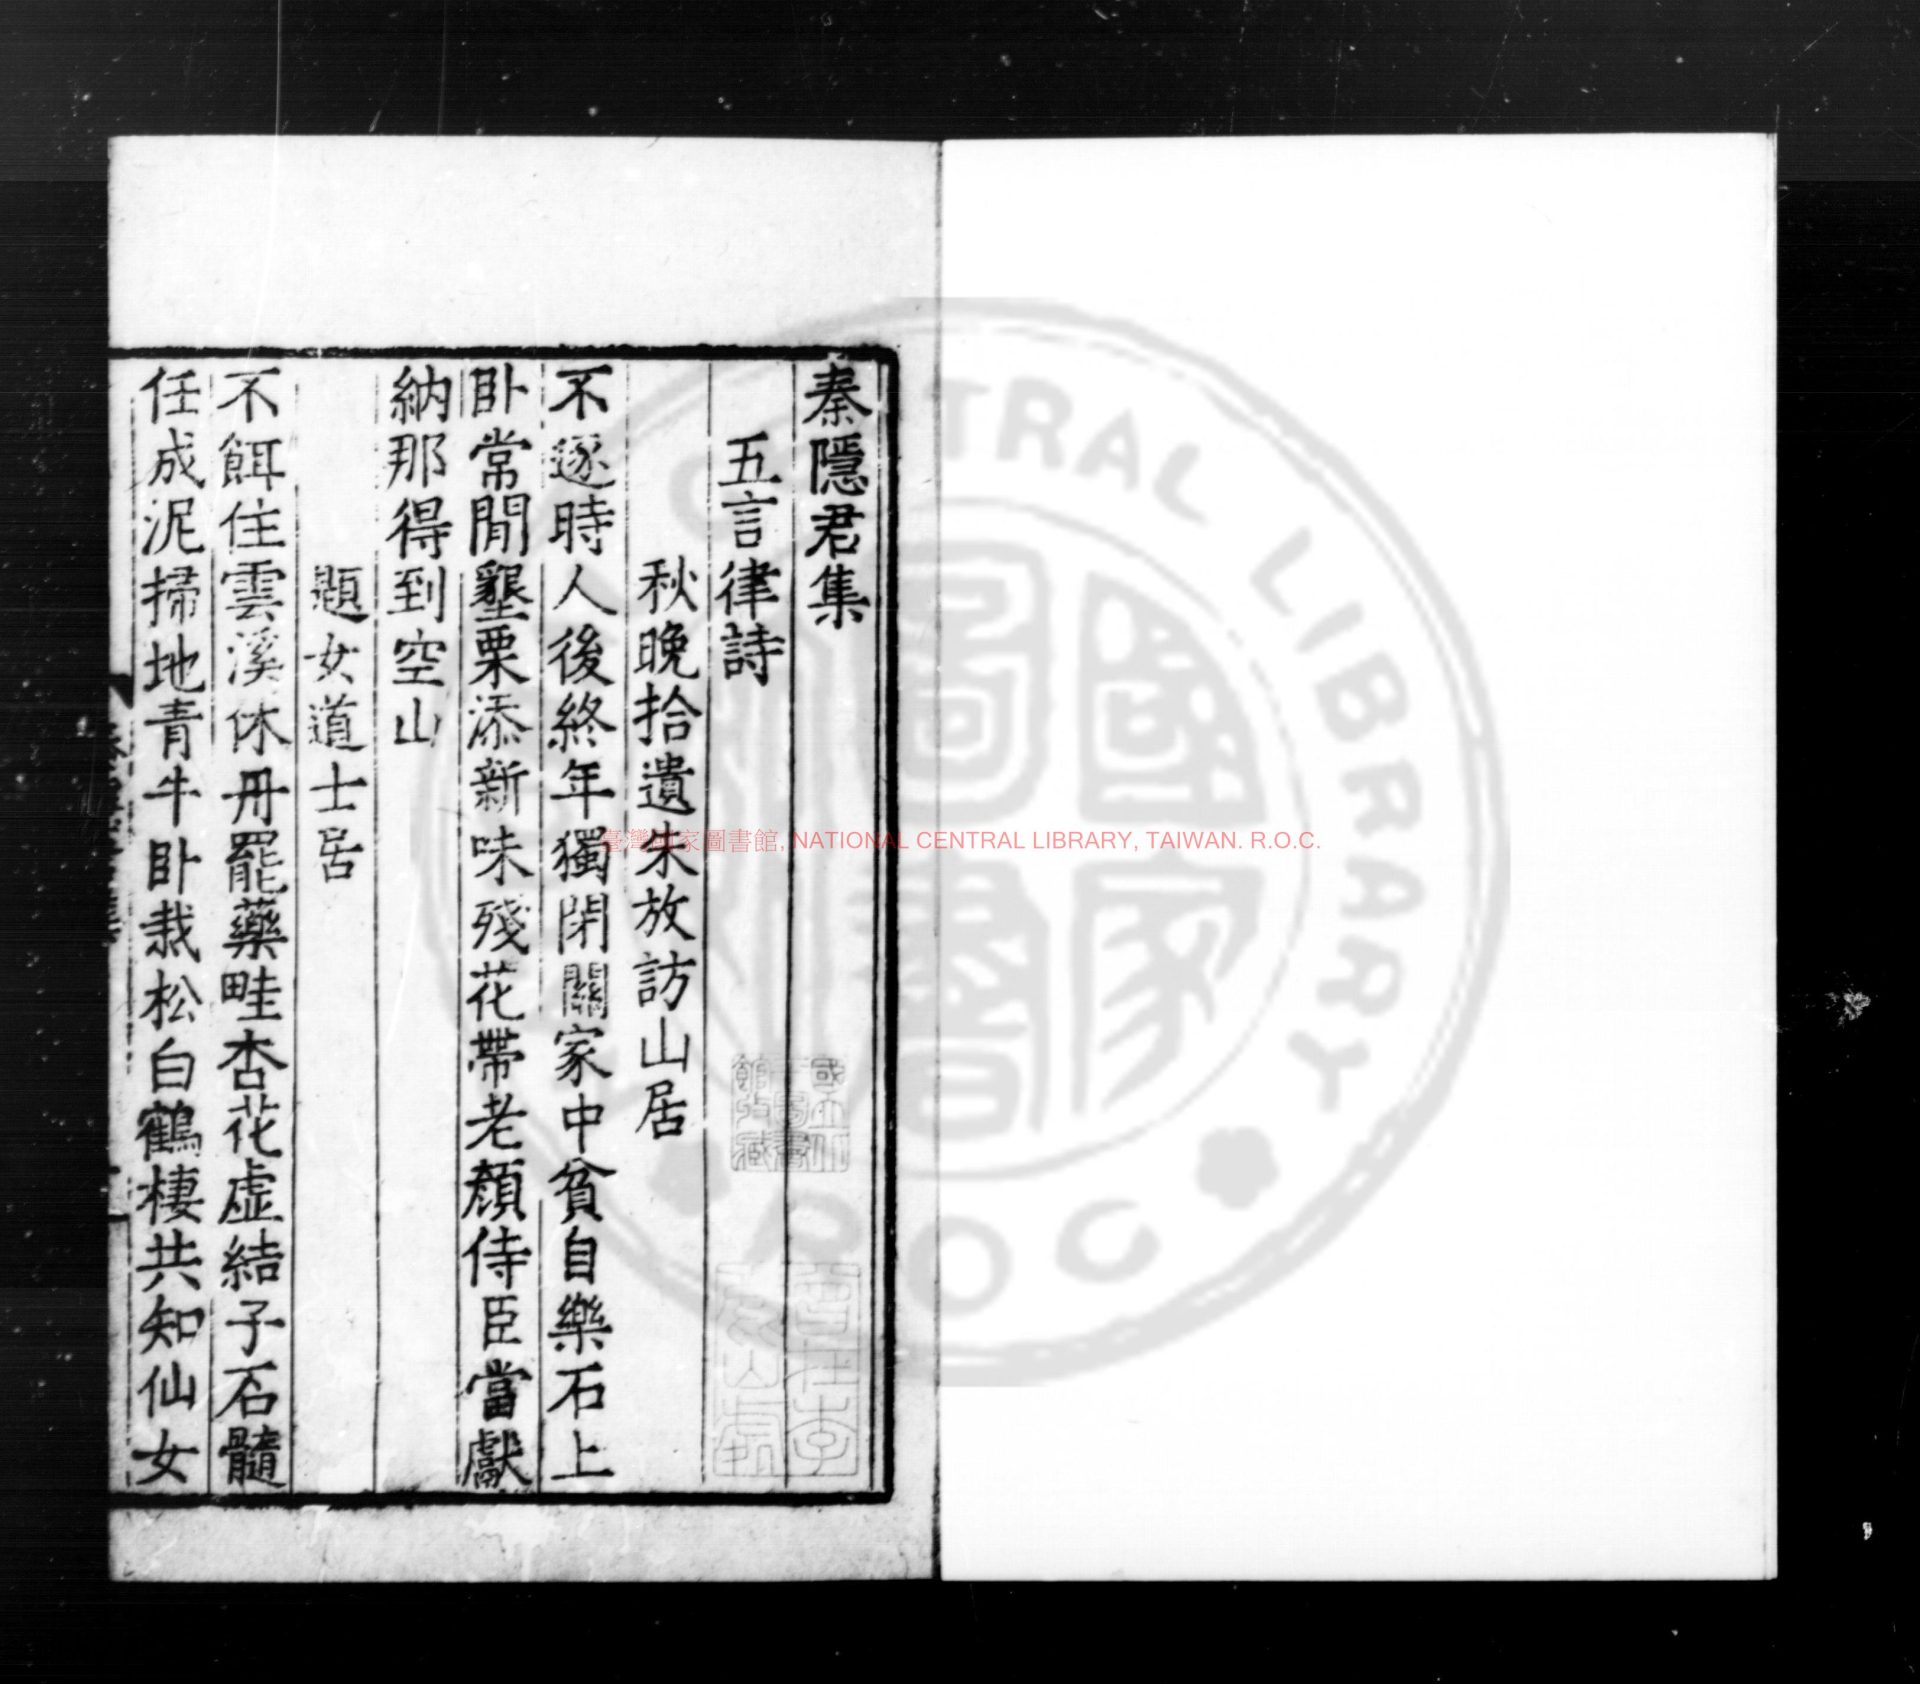 秦隱君集
五言律詩
秋晚拾遺朱放訪山居
不逐時人後終年獨閉關家中貧自樂石上
卧常閒墾栗添新味殘花帶老顏侍臣當獻
納那得到空山
題女道士居
不餌住雲溪休丹罷藥畦杏花虛結子石髓
任成泥掃地青牛卧栽松白鶴棲共知仙女
國立中央圖書館收藏
臺灣國家圖書館, NATIONAL CENTRAL LIBRARY, TAIWAN. R.O.C.
國家圖書
CENTRAL LIBRARY
R O C